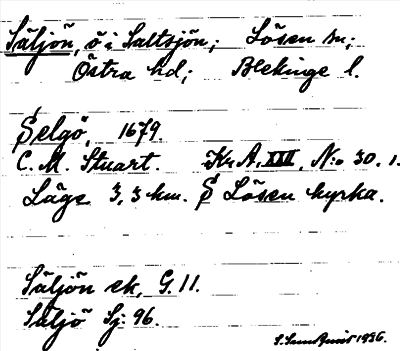 Säljön, ö i Saltsjön; Lösen sn;
Östra hd; Blekinge l.
Selgö, 1679.
C. M. Stuart. Kr. A. XIII, N:o 30. 1.
Läge 3,3 km. S Lösen kyrka.
Säljön ek, G. 11.
Säljö Sj: 96.
1936.